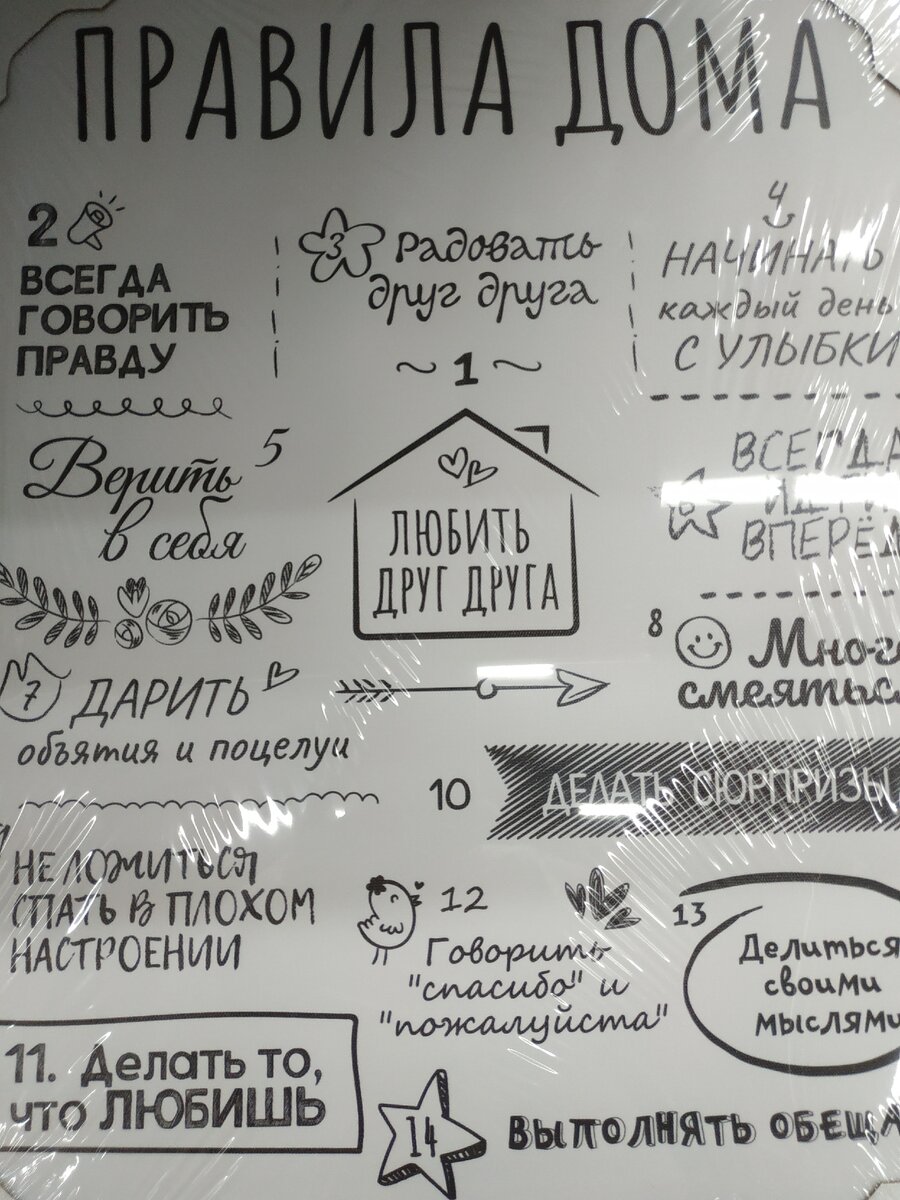 ПРАВИЛА ДОМА
2
ВСЕГДА
ГОВОРИТЬ
ПРАВДУ
3 Радовать
друг друга
4
НАЧИНАТЬ
каждый день
С УЛЫБКИ
~ 1 ~
ЛЮБИТЬ
ДРУГ ДРУГА
5
Верить
в себя
6
ВСЕГДА
ИДТИ
ВПЕРЁД
7 ДАРИТЬ
объятия и поцелуи
8
Много
смеяться
10 ДЕЛАТЬ СЮРПРИЗЫ
НЕ ЛОЖИТЬСЯ
СПАТЬ В ПЛОХОМ
НАСТРОЕНИИ
12
Говорить
"спасибо" и
"пожалуйста"
13
Делиться
своими
мыслями
11. Делать то,
что ЛЮБИШЬ
14 ВЫПОЛНЯТЬ ОБЕЩА